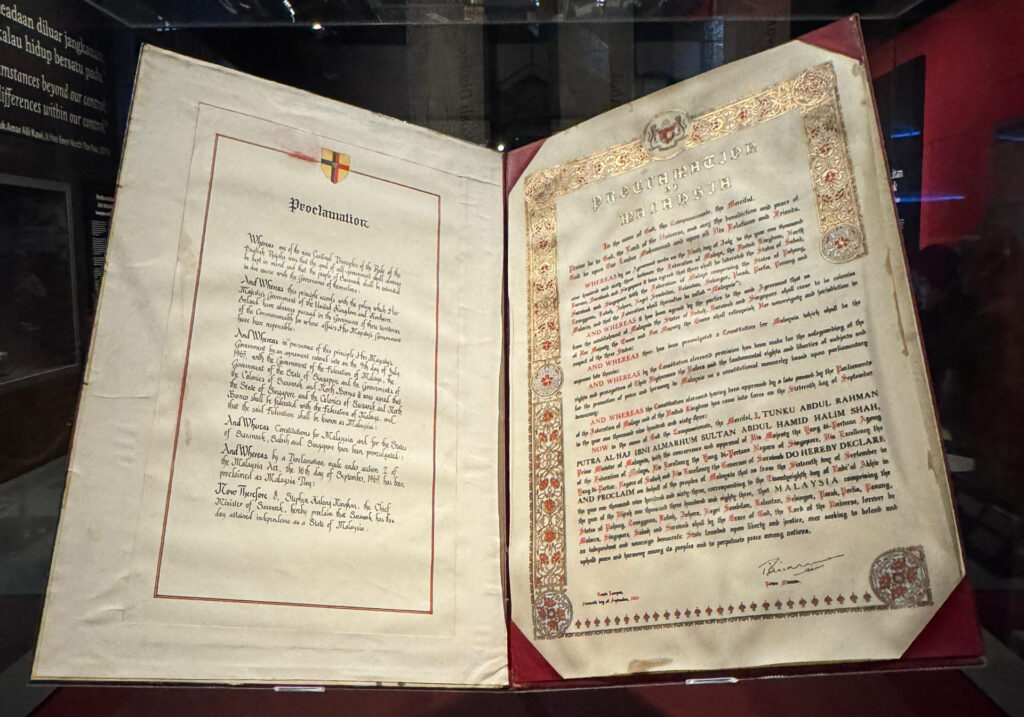 eadaan diluar jangkauan
kalau hidup bersatu padu
mstances beyond our control
differences within our control.
Proclamation
Whereas one of the nine Cardinal Principles of the Rule of the
English Rajahs was that the goal of self-government shall always
be kept in mind and that the people of Sarawak shall be entrusted
in due course with the Governance of themselves;
And Whereas this principle accords with the policy which Her
Majesty's Government of the United Kingdom and Northern
Ireland have always pursued in the Governance of those territories
of the Commonwealth for whose affairs Her Majesty's Government
have been responsible:
And Whereas in pursuance of this principle Her Majesty's
Government by an agreement entered into on the 9th day of July,
1963, with the Government of the Federation of Malaya, the
Government of the State of Singapore and the Governments of
the Colonies of Sarawak and North Borneo it was agreed that
the State of Singapore and the Colonies of Sarawak and North
Borneo shall be federated with the Federation of Malaya, and
that the said Federation shall be known as Malaysia;
And Whereas Constitutions for Malaysia and for the States
of Sarawak, Sabah and Singapore have been promulgated;
And Whereas by a Proclamation made under section 2 of
the Malaysia Act, the 16th day of September, 1963, has been
proclaimed as Malaysia Day:
Now Therefore I, Stephen Kalong Ningkan, the Chief
Minister of Sarawak, hereby proclaim that Sarawak has this
day attained independence as a State of Malaysia.
PROCLAMATION
OF
MALAYSIA
In the name of God, the Compassionate, the Merciful.
Praise be to God, the Lord of the Universe, and may the benediction and peace of
God be upon Our Leader Muhammad and upon all His Relations and Friends.
WHEREAS by an Agreement made on the Ninth day of July in the year one thousand
nine hundred and sixty three between the Federation of Malaya, the United Kingdom, North
Borneo, Sarawak and Singapore it was agreed that there shall be federated the States of Sabah,
Sarawak and Singapore with the Federation of Malaya comprising the States of Pahang,
Trengganu, Kedah, Johore, Negri Sembilan, Kelantan, Selangor, Perak, Perlis, Penang and
Malacca, and that the Federation shall thereafter be called "Malaysia":
AND WHEREAS it has been agreed by the parties to the said Agreement that as from
the establishment of Malaysia the States of Sabah, Sarawak and Singapore shall cease to be colonies
of Her Majesty the Queen and Her Majesty the Queen shall relinquish Her sovereignty and jurisdiction in
respect of the three States:
AND WHEREAS there has been promulgated a Constitution for Malaysia which shall be the
supreme law therein:
AND WHEREAS by the Constitution aforesaid provision has been made for the safeguarding of the
rights and prerogatives of Their Highnesses the Rulers and the fundamental rights and liberties of subjects and
for the promotion of peace and harmony in Malaysia as a constitutional monarchy based upon parliamentary
democracy:
AND WHEREAS the Constitution aforesaid having been approved by a law passed by the Parliaments
of the Federation of Malaya and of the United Kingdom has come into force on the Sixteenth day of September
in the year one thousand nine hundred and sixty three:
NOW in the name of God the Compassionate, the Merciful, I, TUNKU ABDUL RAHMAN
PUTRA AL HAJ IBNI ALMARHUM SULTAN ABDUL HAMID HALIM SHAH,
Prime Minister of Malaysia, with the concurrence and approval of His Majesty the Yang di-Pertuan Agong
of the Federation of Malaya, His Excellency the Yang di-Pertuan Negara of Singapore, His Excellency the
Yang di-Pertua Negara of Sabah and His Excellency the Governor of Sarawak DO HEREBY DECLARE
AND PROCLAIM on behalf of the peoples of Malaysia that as from the Sixteenth day of September in
the year one thousand nine hundred and sixty three, corresponding to the Twenty-eighth day of Rabi' al Akhir in
the year of the Hijrah one thousand three hundred and eighty three, that MALAYSIA comprising the
States of Pahang, Trengganu, Kedah, Johore, Negri Sembilan, Kelantan, Selangor, Perak, Perlis, Penang,
Malacca, Singapore, Sabah and Sarawak shall by the Grace of God, the Lord of the Universe, forever be
an independent and sovereign democratic State founded upon liberty and justice, ever seeking to defend and
uphold peace and harmony among its peoples and to perpetuate peace among nations.
Prime Minister.
Kuala Lumpur,
Sixteenth day of September, 1963